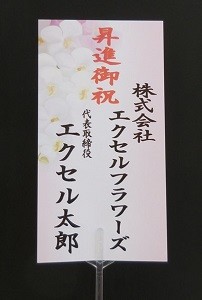 昇進御祝
株式会社
エクセルフラワーズ
代表取締役
エクセル太郎